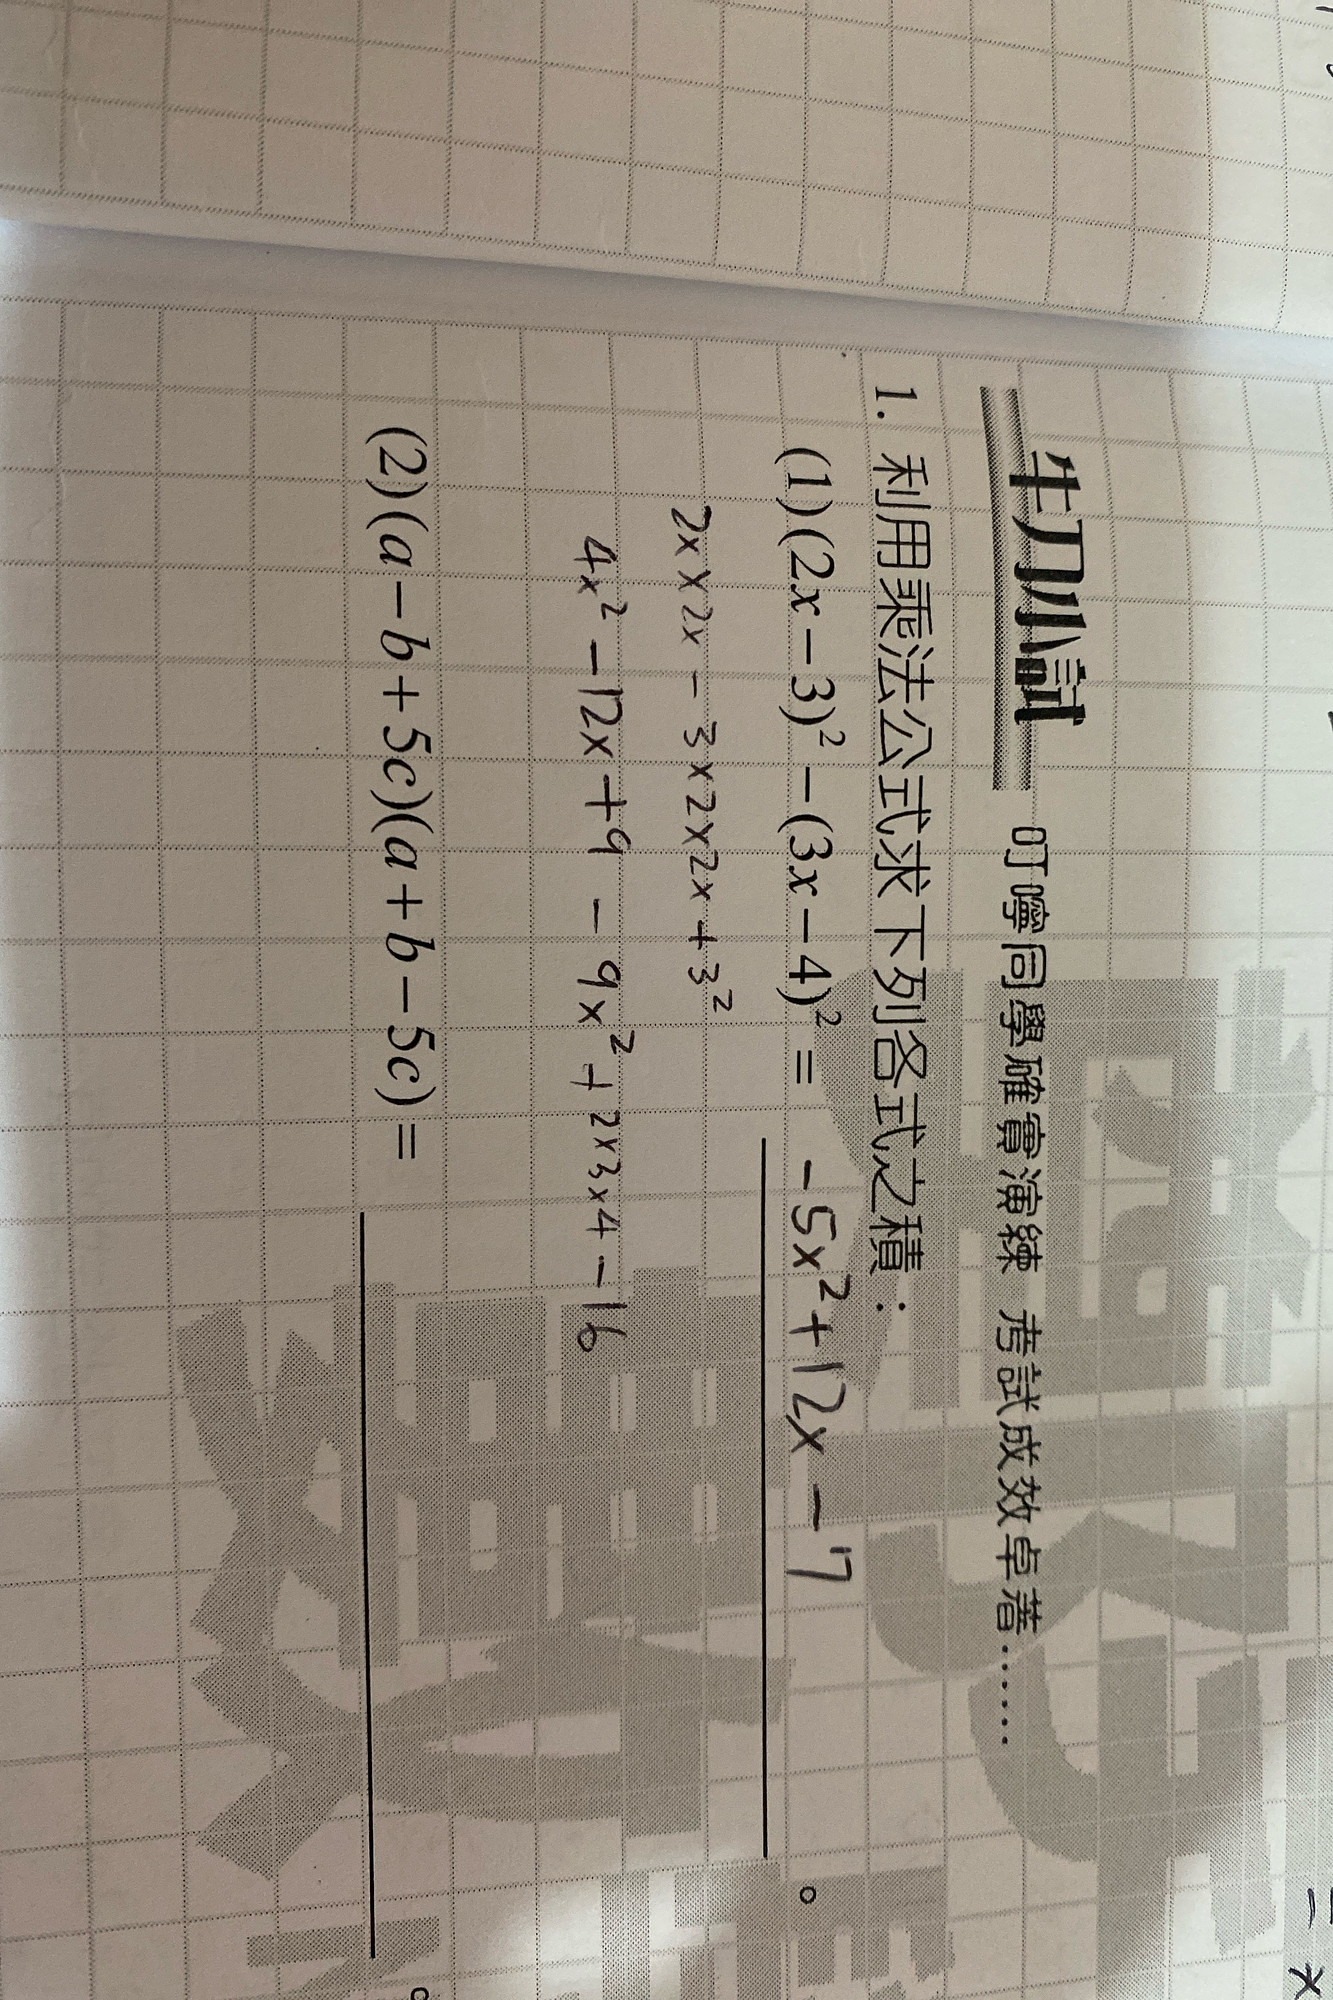 牛刀小試 叮嚀同學確實演練 考試成效卓著……
1. 利用乘法公式求下列各式之積：
(1)(2x－3)²－(3x－4)²＝ -5x²+12x-7 。
2x×2x-3×2×2x+3²
4x²-12x+9-9x²+2×3×4-16
(2)(a－b＋5c)(a＋b－5c)＝ 。